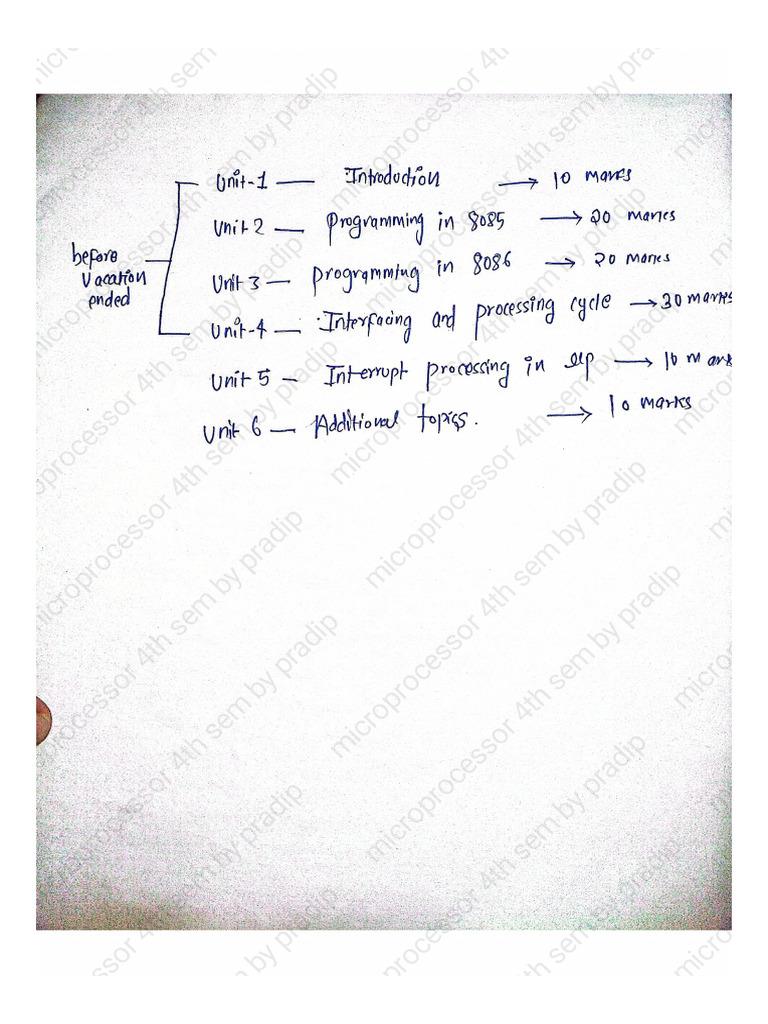 Unit-1 — Introduction → 10 marks
Unit 2 — Programming in 8085 → 20 marks
before
Vacation
ended
Unit 3 — Programming in 8086 → 20 marks
Unit-4 — Interfacing and processing cycle → 30 marks
Unit 5 — Interrupt processing in up → 10 mark
Unit 6 — Additional topics. → 10 marks
microprocessor 4th sem by pradip